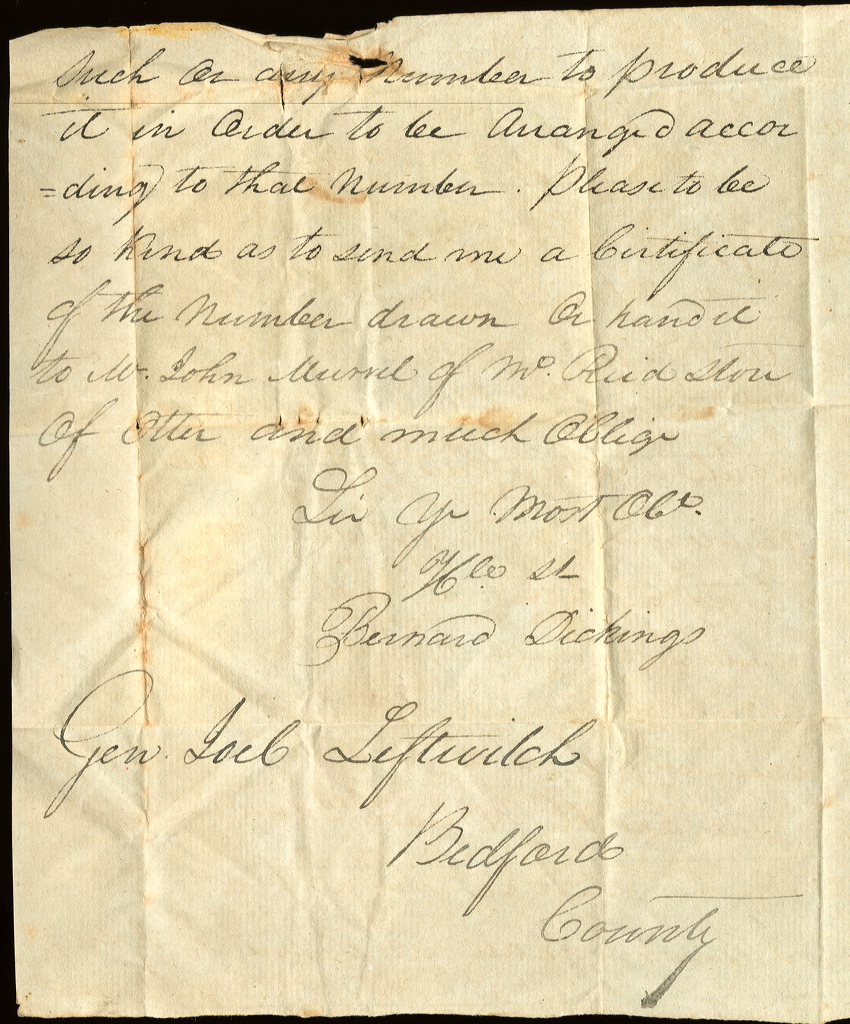 Such Or any Number to produce
it in Order to be Arranged accor
=ding to that Number. Please to be
so kind as to send me a Certificate
of the Number drawn Or hand it
to Mr. John Murrel of Mr. Reid Store
Of Otter and much Oblige
Sir Yr Most Obt.
Hble St
Bernard Dickings
Gen. Joel Leftwitch
Bedford
County